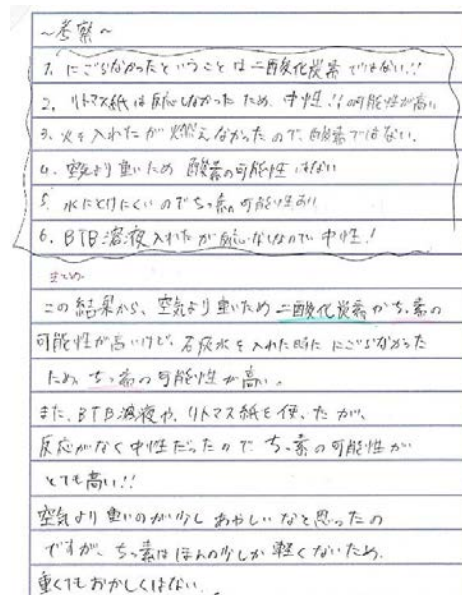 ～考察～
1. にごらなかったということは二酸化炭素ではない!!
2. リトマス紙は反応しなかったため、中性!!可能性が高い
3. 火を入れたが燃えなかったので、酸素ではない.
4. 空気より重いため 酸素の可能性はない
5. 水にとけにくいのでちっ素の可能性あり
6. BTB溶液入れたが反応なしなので、中性!
まとめ
この結果から、空気より重いため二酸化炭素かちっ素の
可能性が高いけど、石灰水を入れた時に にごらなかった
ため、ちっ素の可能性が高い。
また、BTB溶液や、リトマス紙を使ったが、
反応がなく中性だったので ちっ素の可能性が
とても高い!!
空気より重いのが少し あやしいなと思ったの
ですが、ちっ素はほんの少ししか軽くないため、
重くてもおかしくはない.